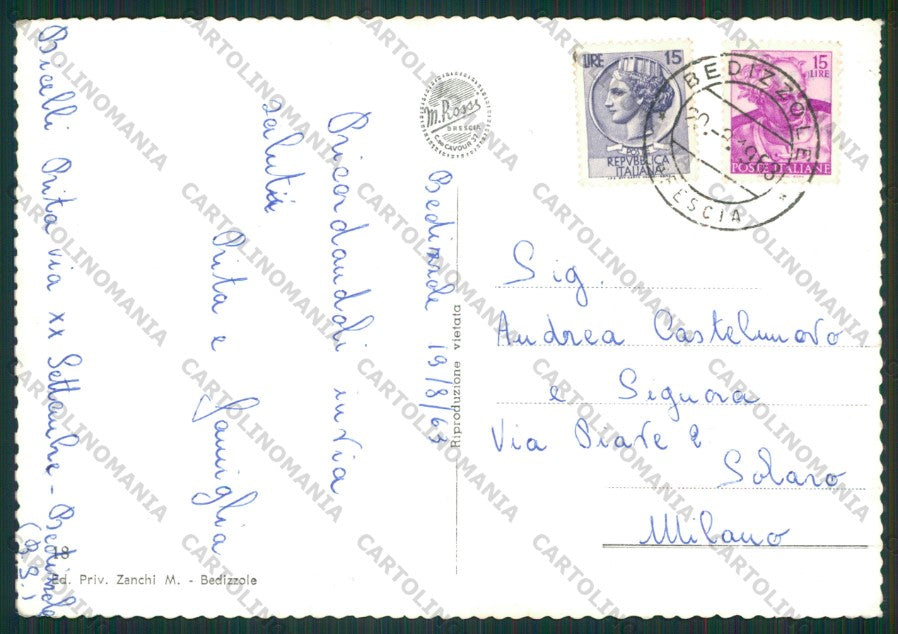 Bicelli Rita via XX Settembre - Bedizzole
(BS)
Ricordandoli invia
saluti
Rita e
famiglia
Bedizzole 19/8/63
M. Rossi
BRESCIA
C.so CAVOUR 37
Riproduzione vietata
LIRE 15
REPVBBLICA
ITALIANA
15
LIRE
POSTE ITALIANE
BEDIZZOLE
BRESCIA
Sig.
Andrea Castelnuovo
e Signora
Via Piave 2
Solaro
Milano
18
Ed. Priv. Zanchi M. - Bedizzole
CARTOLINOMANIA